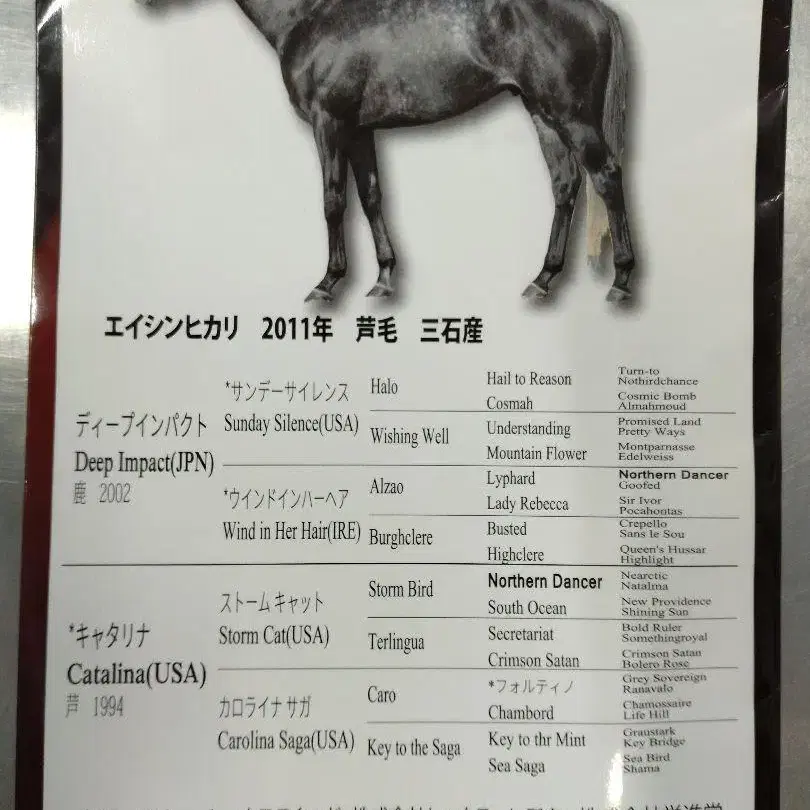 エイシンヒカリ 2011年 芦毛 三石産
ディープインパクト
Deep Impact(JPN)
鹿 2002
*サンデーサイレンス
Sunday Silence(USA)
Halo
Hail to Reason
Turn-to
Nothirdchance
Cosmah
Cosmic Bomb
Almahmoud
Wishing Well
Understanding
Promised Land
Pretty Ways
Mountain Flower
Montparnasse
Edelweiss
*ウインドインハーヘア
Wind in Her Hair(IRE)
Alzao
Lyphard
Northern Dancer
Goofed
Lady Rebecca
Sir Ivor
Pocahontas
Burghclere
Busted
Crepello
Sans le Sou
Highclere
Queen's Hussar
Highlight
*キャタリナ
Catalina(USA)
芦 1994
ストームキャット
Storm Cat(USA)
Storm Bird
Northern Dancer
Nearctic
Natalma
South Ocean
New Providence
Shining Sun
Terlingua
Secretariat
Bold Ruler
Somethingroyal
Crimson Satan
Crimson Satan
Bolero Rose
カロライナサガ
Carolina Saga(USA)
Caro
*フォルティノ
Grey Sovereign
Ranavalo
Chambord
Chamossaire
Life Hill
Key to the Saga
Key to thr Mint
Graustark
Key Bridge
Sea Saga
Sea Bird
Shama